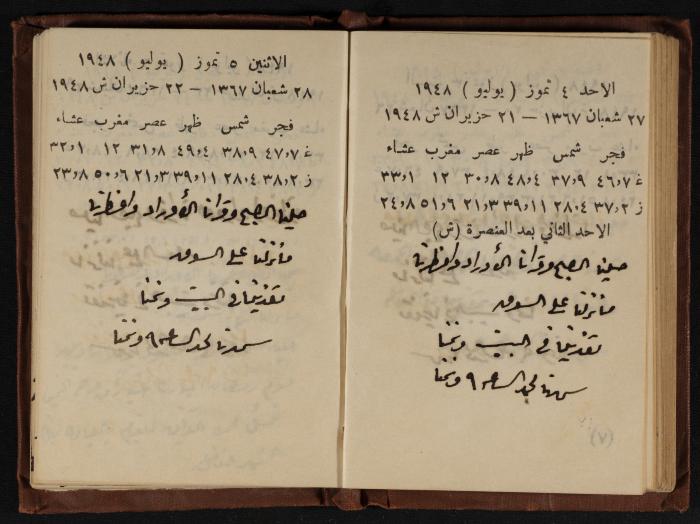 الاحد ٤ تموز ( يوليو ) ١٩٤٨
٢٧ شعبان ١٣٦٧ — ٢١ حزيران ش ١٩٤٨
فجر شمس ظهر عصر مغرب عشاء
غ ٤٦٫٧ ٣٧٫٩ ٤٨٫٤ ٣٠٫٨ ١٢ ٣٣٫١
ز ٣٧٫٢ ٢٨٫٤ ٣٩٫١١ ٢١٫٣ ٥١٫٦ ٢٤٫٨
الاحد الثاني بعد العنصرة (ش)
صلينا الصبح وقرأنا الأوراد وافطرنا
ما نزلنا على السوق
تغدينا في البيت ونمنا
سهرنا لحد الساعة ٩ ونمنا
(٧)
الاثنين ٥ تموز ( يوليو ) ١٩٤٨
٢٨ شعبان ١٣٦٧ — ٢٢ حزيران ش ١٩٤٨
فجر شمس ظهر عصر مغرب عشاء
غ ٤٧٫٧ ٣٨٫٩ ٤٩٫٤ ٣١٫٨ ١٢ ٣٢٫١
ز ٣٨٫٢ ٢٨٫٤ ٣٩٫١١ ٢١٫٣ ٥٠٫٦ ٢٣٫٨
صلينا الصبح وقرأنا الأوراد وافطرنا
ما نزلنا على السوق
تغدينا في البيت ونمنا
سهرنا لحد الساعة ٩ ونمنا